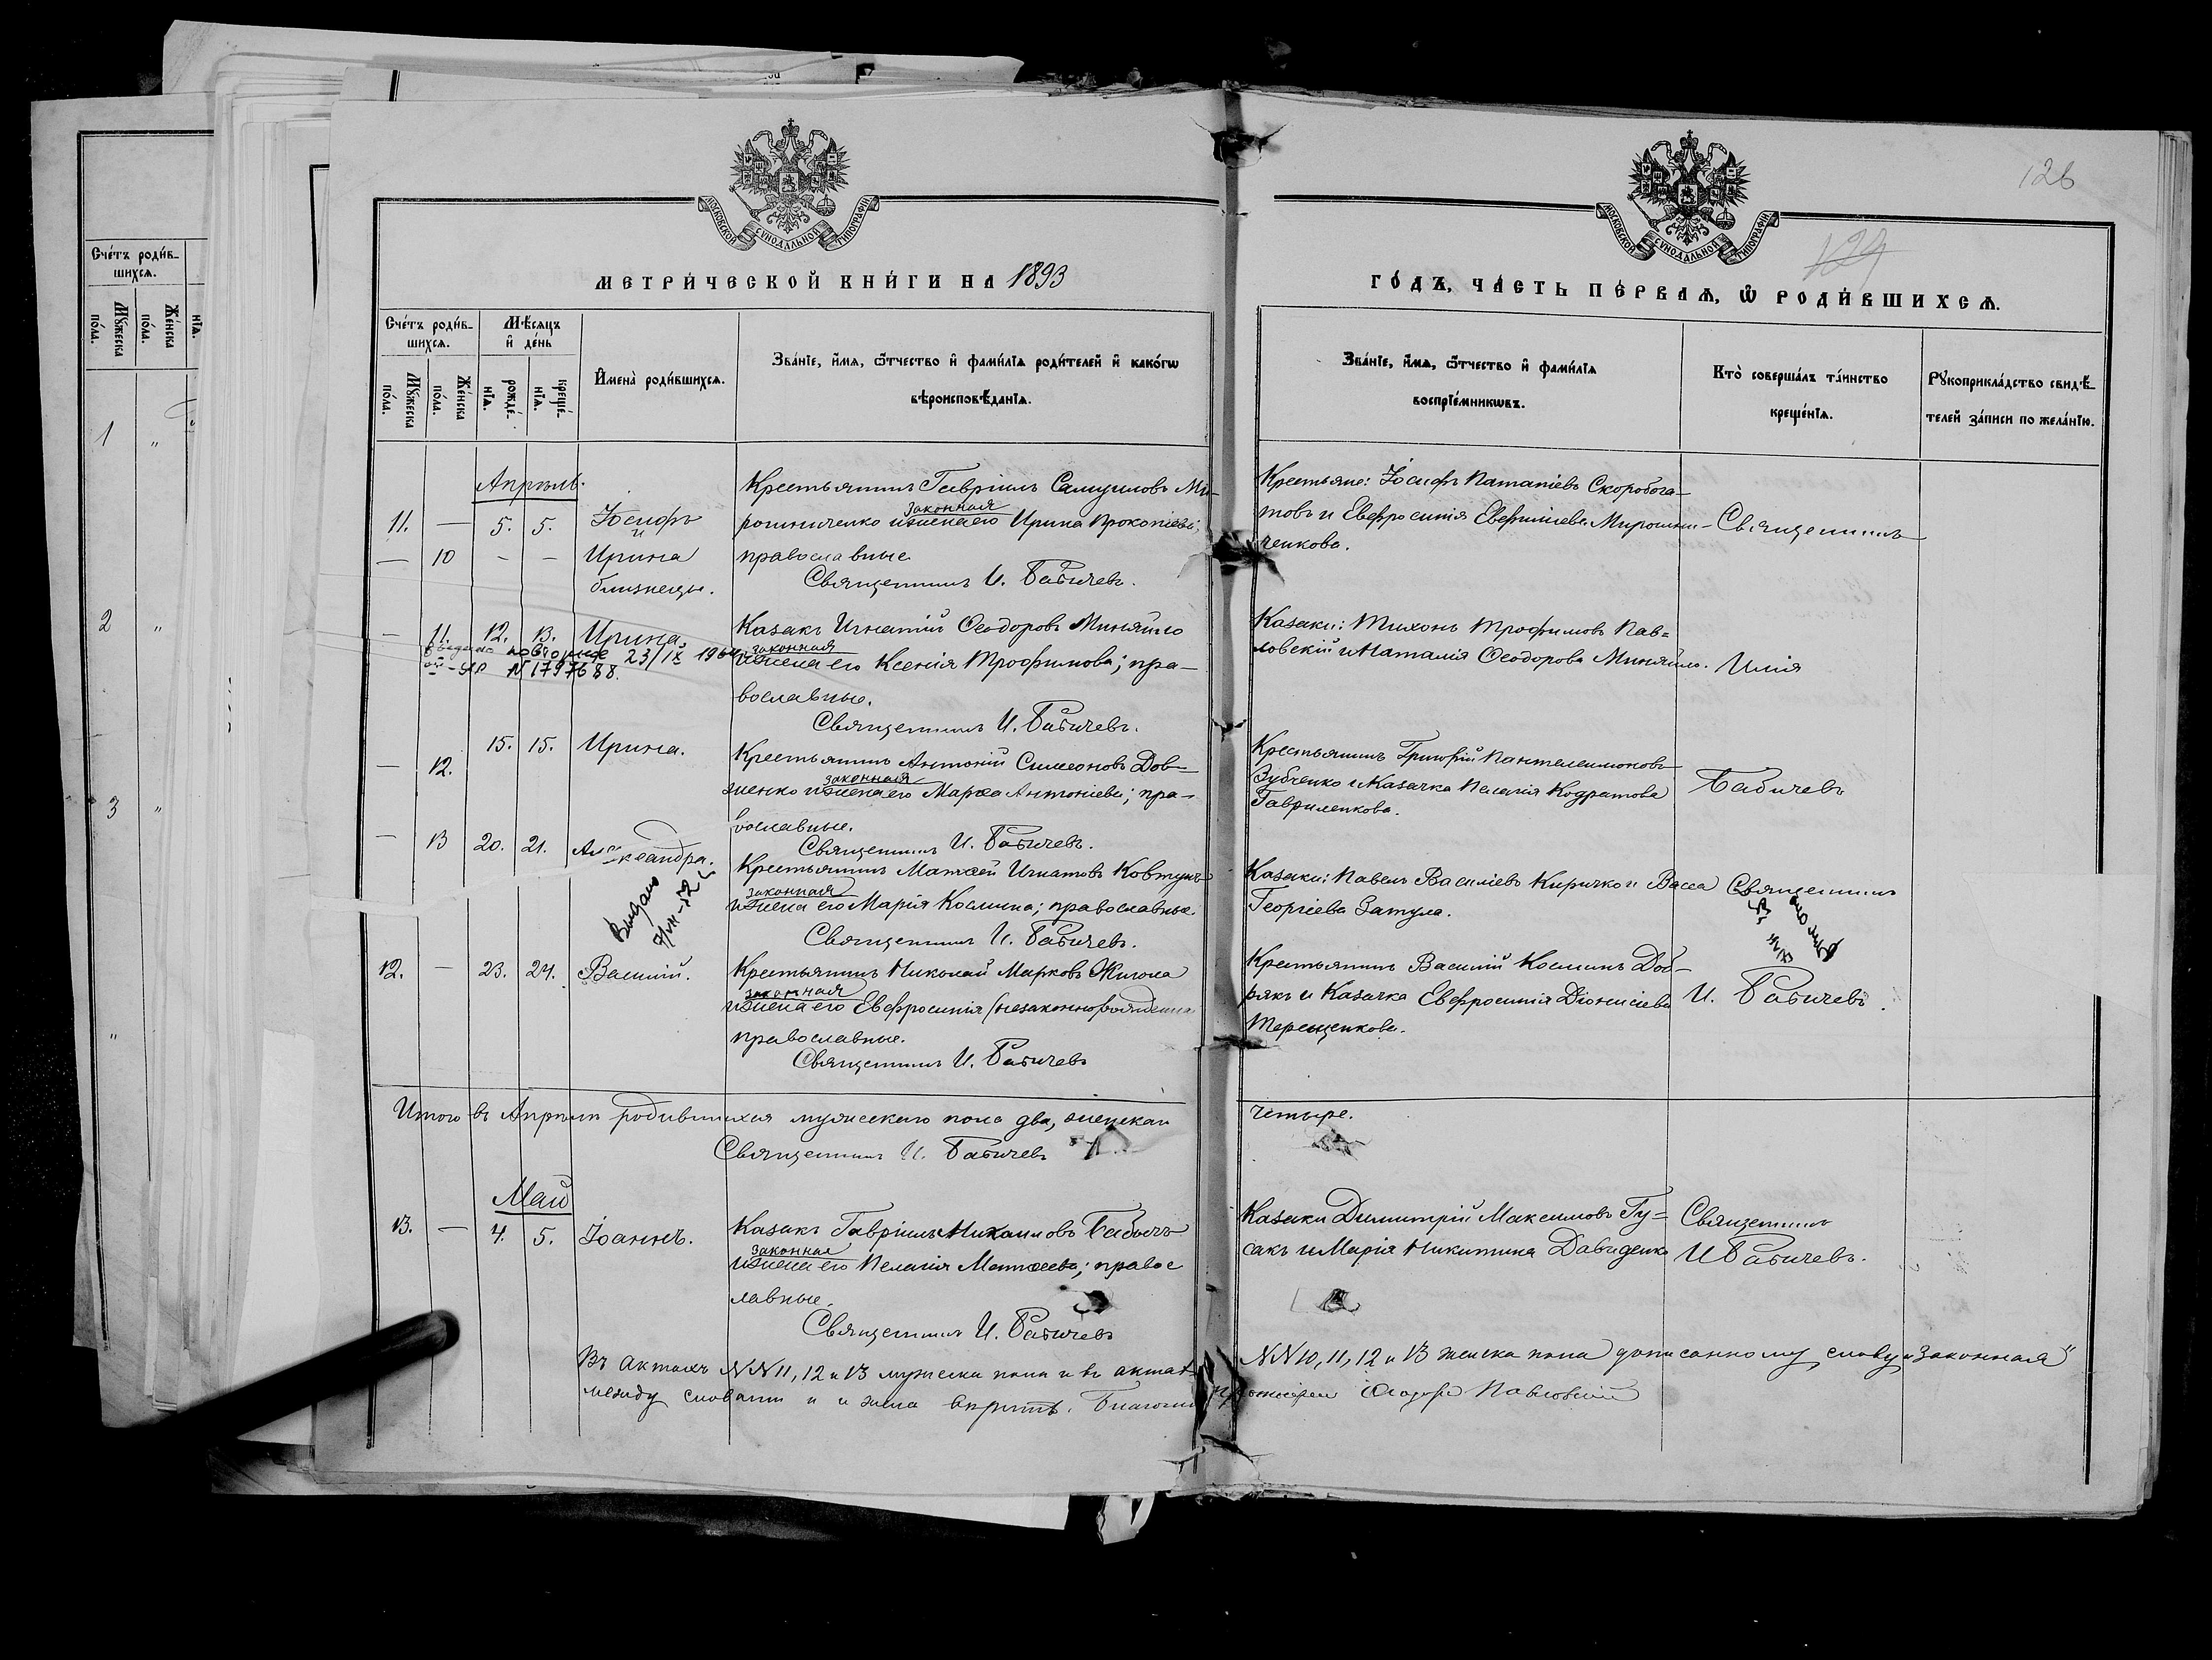 126
124
МОСКОВСКОЙ СУНОДАЛЬНОЙ ТИПОГРАФІИ
МОСКОВСКОЙ СУНОДАЛЬНОЙ ТИПОГРАФІИ
МЕТРИ́ЧЕСКОЙ КНИ́ГИ НА 1893
ГО́ДЪ, ЧА́СТЬ ПЕ́РВАѦ, Ѡ҆ РОДИ́ВШИХСѦ.
Сче́тъ роди́в-
шихсѧ.
Мꙋ́жеска
по́ла.
Же́нска
по́ла.
нїѧ.
1 "
2 "
3 "
"
Сче́тъ роди́в-
шихсѧ.
Мꙋ́жеска
по́ла.
Же́нска
по́ла.
Мѣ́сѧцъ
и҆ де́нь
рожде́-
нїѧ.
креще́-
нїѧ.
И҆мена̀ роди́вшихсѧ.
Зва́нїе, и҆́мѧ, ѻ҆́тчество и҆ фами́лїѧ роди́телей и҆ како́гѡ
вѣроисповѣ́данїѧ.
Зва́нїе, и҆́мѧ, ѻ҆́тчество и҆ фами́лїѧ
воспрїе́мникѡвъ.
Кто̀ соверша́лъ та́инство
креще́нїѧ.
Рꙋкоприкла́дство свидѣ́-
телей за́писи по жела́нїю.
Апрѣль.
11. — 5. 5. Іосифъ
и
— 10 - - Ирина
близнецы.
Крестьянинъ Гавріилъ Самуиловъ Ми-
законная
рошниченко и жена его Ирина Прокопіева;
православные
Священникъ И. Бабичевъ.
Крестьяне: Іосифъ Потапіевъ Скоробога-
товъ и Евфросинія Евфиміева Мирошни-
ченкова.
Священникъ
— 11. 12. 13. Ирина.
повторное 23/IX 1964
№ 1797688.
Казакъ Игнатій Ѳеодоровъ Миняйло
законная
и жена его Ксенія Трофимова; пра-
вославные.
Священникъ И. Бабичевъ.
Казаки: Тихонъ Трофимовъ Пав=
ловскій и Наталія Ѳеодорова Миняйло.
Илія
— 12. 15. 15. Ирина.
Крестьянинъ Антоній Симеоновъ Дов-
законная
женко и жена его Марѳа Антоніева; пра-
вославные.
Священникъ И. Бабичевъ.
Крестьянинъ Григорій Пантелеимоновъ
Зубченко и Казачка Пелагія Кодратова
Гавриленкова.
Бабичевъ
— 13 20. 21. Александра.
Выдано
Крестьянинъ Матѳей Игнатовъ Ковтунъ
законная
и жена его Марія Космина; православные.
Священникъ И. Бабичевъ.
Казаки: Павелъ Василіевъ Киричко и Васса
Георгіева Затула.
Священникъ
12. — 23. 24. Василій.
Крестьянинъ Николай Марковъ Жигола
законная
и жена его Евфросинія (незаконнорожденная
православные.
Священникъ И. Бабичевъ
Крестьянинъ Василій Косминъ Доб-
рякъ и Казачка Евфросинія Діонисіева
Терещенкова.
И. Бабичевъ.
Итого въ Апрѣлѣ родившихся мужескаго пола два, женскаго четыре.
Священникъ И. Бабичевъ
Май
13. — 4. 5. Іоаннъ.
Казакъ Гавріилъ Михаиловъ Бабычъ
законная
и жена его Пелагія Матѳеева; правос
лавные.
Священникъ И. Бабичевъ
Казаки Димитрій Максимовъ Гу=
сакъ и Марія Никитина Давиденко
Священникъ
И Бабичевъ.
Въ актахъ NN 11, 12 и 13 мужеска пола и въ актахъ NN 10, 11, 12 и 13 женска пола дописанному слову „законная“
между словами и и жена вѣрить. Ѳеодоръ Павловскій